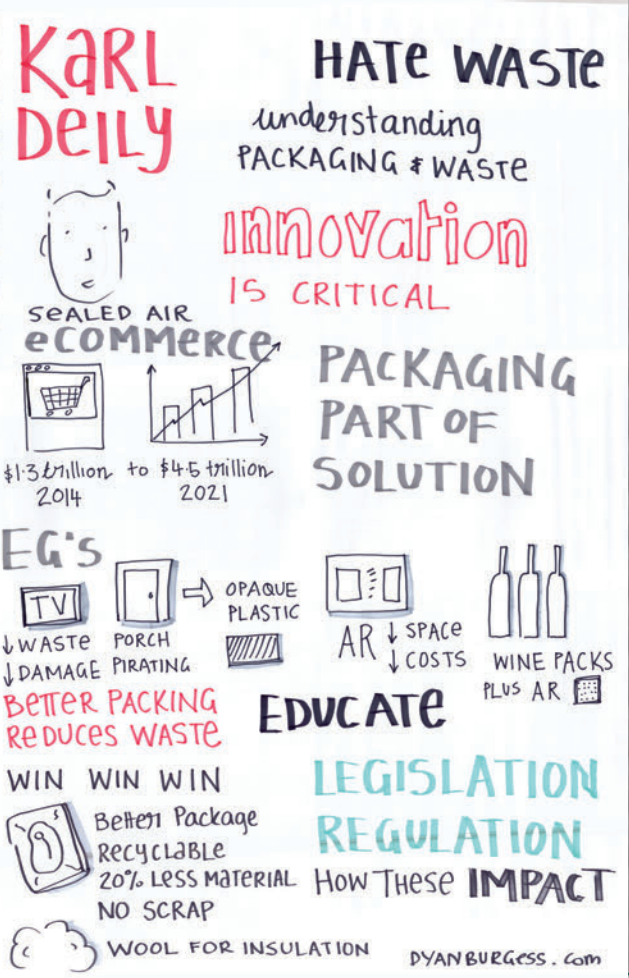 KARL
DEILY
HATE WASTE
understanding
PACKAGING & WASTE
innovation
IS CRITICAL
SEALED AIR
eCOMMERCE
$1.3 trillion to $4.5 trillion
2014 2021
PACKAGING
PART OF
SOLUTION
EG'S
TV
↓ WASTE
↓ DAMAGE
PORCH
PIRATING
OPAQUE
PLASTIC
AR ↓ SPACE
↓ COSTS
WINE PACKS
PLUS AR
BETTER PACKING
REDUCES WASTE
EDUCATE
WIN WIN WIN
Better Package
RECYCLABLE
20% LESS MATERIAL
NO SCRAP
WOOL FOR INSULATION
LEGISLATION
REGULATION
How THESE IMPACT
DYANBURGESS.com